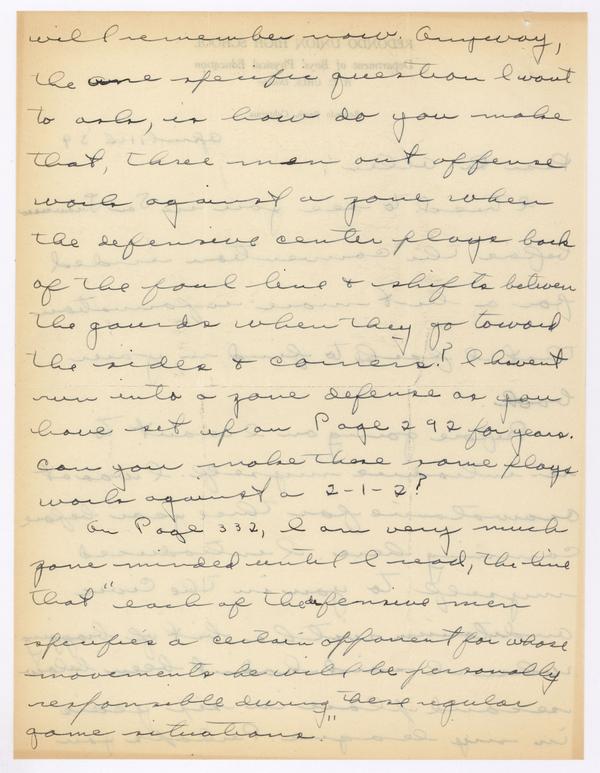 will remember now. Anyway,
the one specific question I want
to ask, is how do you make
that, three men out offense
work against a zone when
the defensive center plays back
of the foul line & shifts between
the gaurds when they go toward
the sides & corners? I haven't
run into a zone defense as you
have set up on Page 292 for years.
Can you make these same plays
work against a 2-1-2?
On Page 332, I am very much
zone minded until I read, the line
that "each of the defensive men
specifies a certain opponent for whose
movements he will be personally
responsible during these regular
game situations."